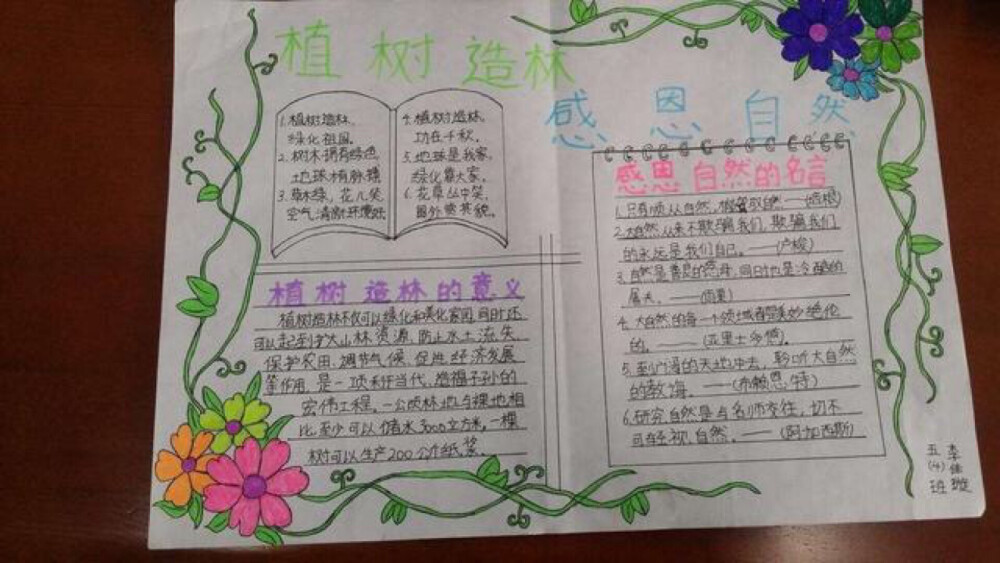 植树造林
感恩自然
1.植树造林,
绿化祖国。
2.树木拥有绿色,
地球有脉搏
3.草木绿,花儿笑
空气清新环境好
4.植树造林,
功在千秋。
5.地球是我家,
绿化靠大家。
6.花草丛中笑,
园外赏其貌。
植树造林的意义
植树造林不仅可以绿化和美化家园,同时还
可以起到扩大山林资源、防止水土流失、
保护农田、调节气候、促进经济发展
等作用,是一项利于当代、造福子孙的
宏伟工程。一公顷林地与裸地相
比,至少可以储水3000立方米。一棵
树可以生产200公斤纸浆。
感恩自然的名言
1.只有顺从自然,才能驾驭自然——(培根)
2.大自然从来不欺骗我们,欺骗我们
的永远是我们自己。——(卢梭)
3.自然是善良的慈母,同时也是冷酷的
屠夫。——(雨果)
4.大自然的每一个领域都是美妙绝伦
的。——(亚里士多德)
5.至广阔的天地中去,聆听大自然
的教诲。——(布赖恩特)
6.研究自然是与名师交往,切不
可轻视自然。——(阿加西斯)
五(4)班
李佳璇